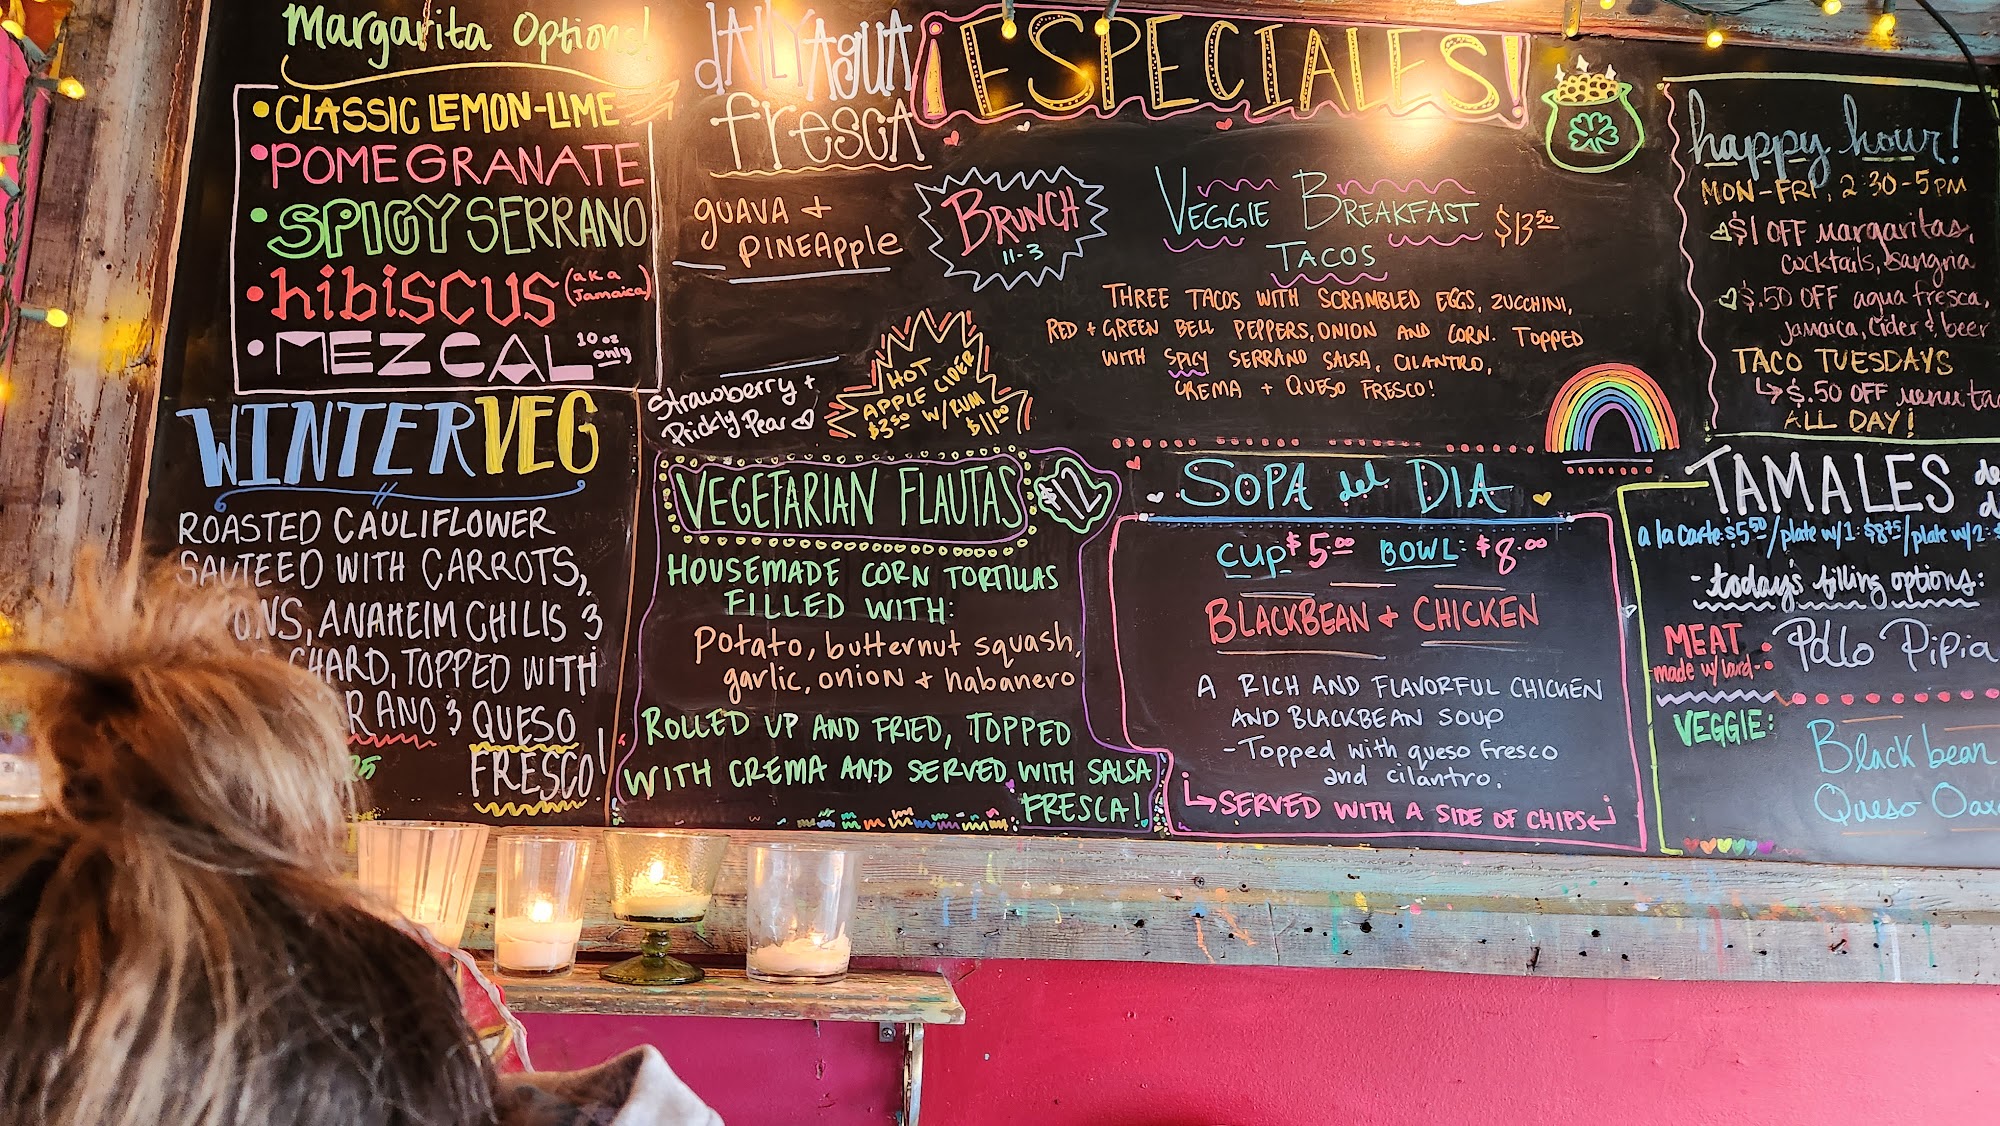 Margarita Options!
• CLASSIC LEMON-LIME
• POMEGRANATE
• SPICY SERRANO
• hibiscus (aka Jamaica)
• MEZCAL 10 oz only
WINTER VEG
ROASTED CAULIFLOWER
SAUTEED WITH CARROTS,
ONS, ANAHEIM CHILIS 3
CHARD, TOPPED WITH
RANO 3 QUESO
FRESCO!
dAILY AgUA
frescA
gUAVA +
PINEApple
Strawberry +
Prickly Pear
BRUNCH
11-3
HOT
APPLE CIDER
$3.50 W/ RUM
$11.00
VEGETARIAN FLAUTAS $12
HOUSEMADE CORN TORTILLAS
FILLED WITH:
Potato, butternut squash,
garlic, onion + habanero
ROLLED UP AND FRIED, TOPPED
WITH CREMA AND SERVED WITH SALSA
FRESCA!
¡ESPECIALES!
VEGGIE BREAKFAST $13.50
TACOS
THREE TACOS WITH SCRAMBLED EGGS, ZUCCHINI,
RED + GREEN BELL PEPPERS, ONION AND CORN. TOPPED
WITH SPICY SERRANO SALSA, CILANTRO,
CREMA + QUESO FRESCO!
SOPA del DIA
CUP $5.00 BOWL: $8.00
BLACKBEAN + CHICKEN
A RICH AND FLAVORFUL CHICKEN
AND BLACKBEAN SOUP
-Topped with queso fresco
and cilantro.
SERVED WITH A SIDE OF CHIPS
happy hour!
MON-FRI, 2:30-5PM
$1 OFF margaritas,
cocktails, sangria
$.50 OFF agua fresca,
jamaica, cider & beer
TACO TUESDAYS
$.50 OFF menu
ALL DAY!
TAMALES
a la carte: $5.50/plate w/1: $8.75/plate w/2:
-today's filling options:
MEAT: Pollo Pipia
made w/ lard-
VEGGIE: Black bean
Queso